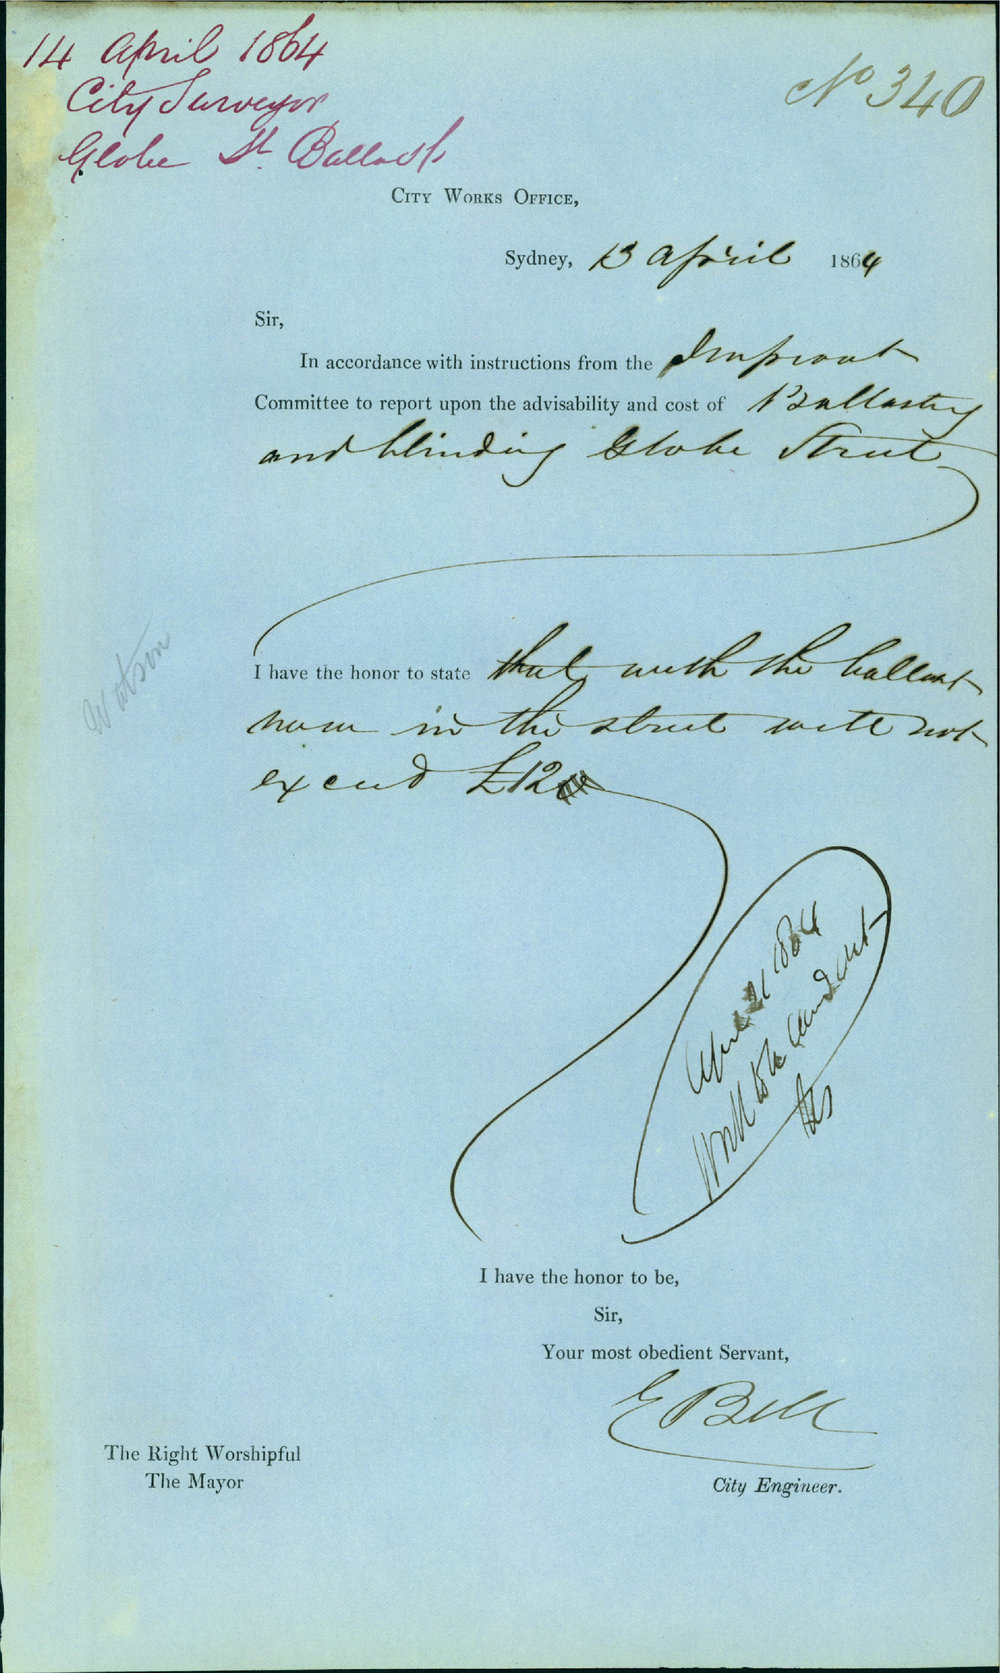 14 April 1864
City Surveyor
Globe St Ballast
No 340
City Works Office,
Sydney, 13 April 1864
Sir,
In accordance with instructions from the Improvmt
Committee to report upon the advisability and cost of Ballasting
and blinding Globe Street
Watson
I have the honor to state that with the ballast
now in the street will not
exceed £12
April 21 1864
Work to be
I have the honor to be,
Sir,
Your most obedient Servant,
E Bell
The Right Worshipful
The Mayor
City Engineer.